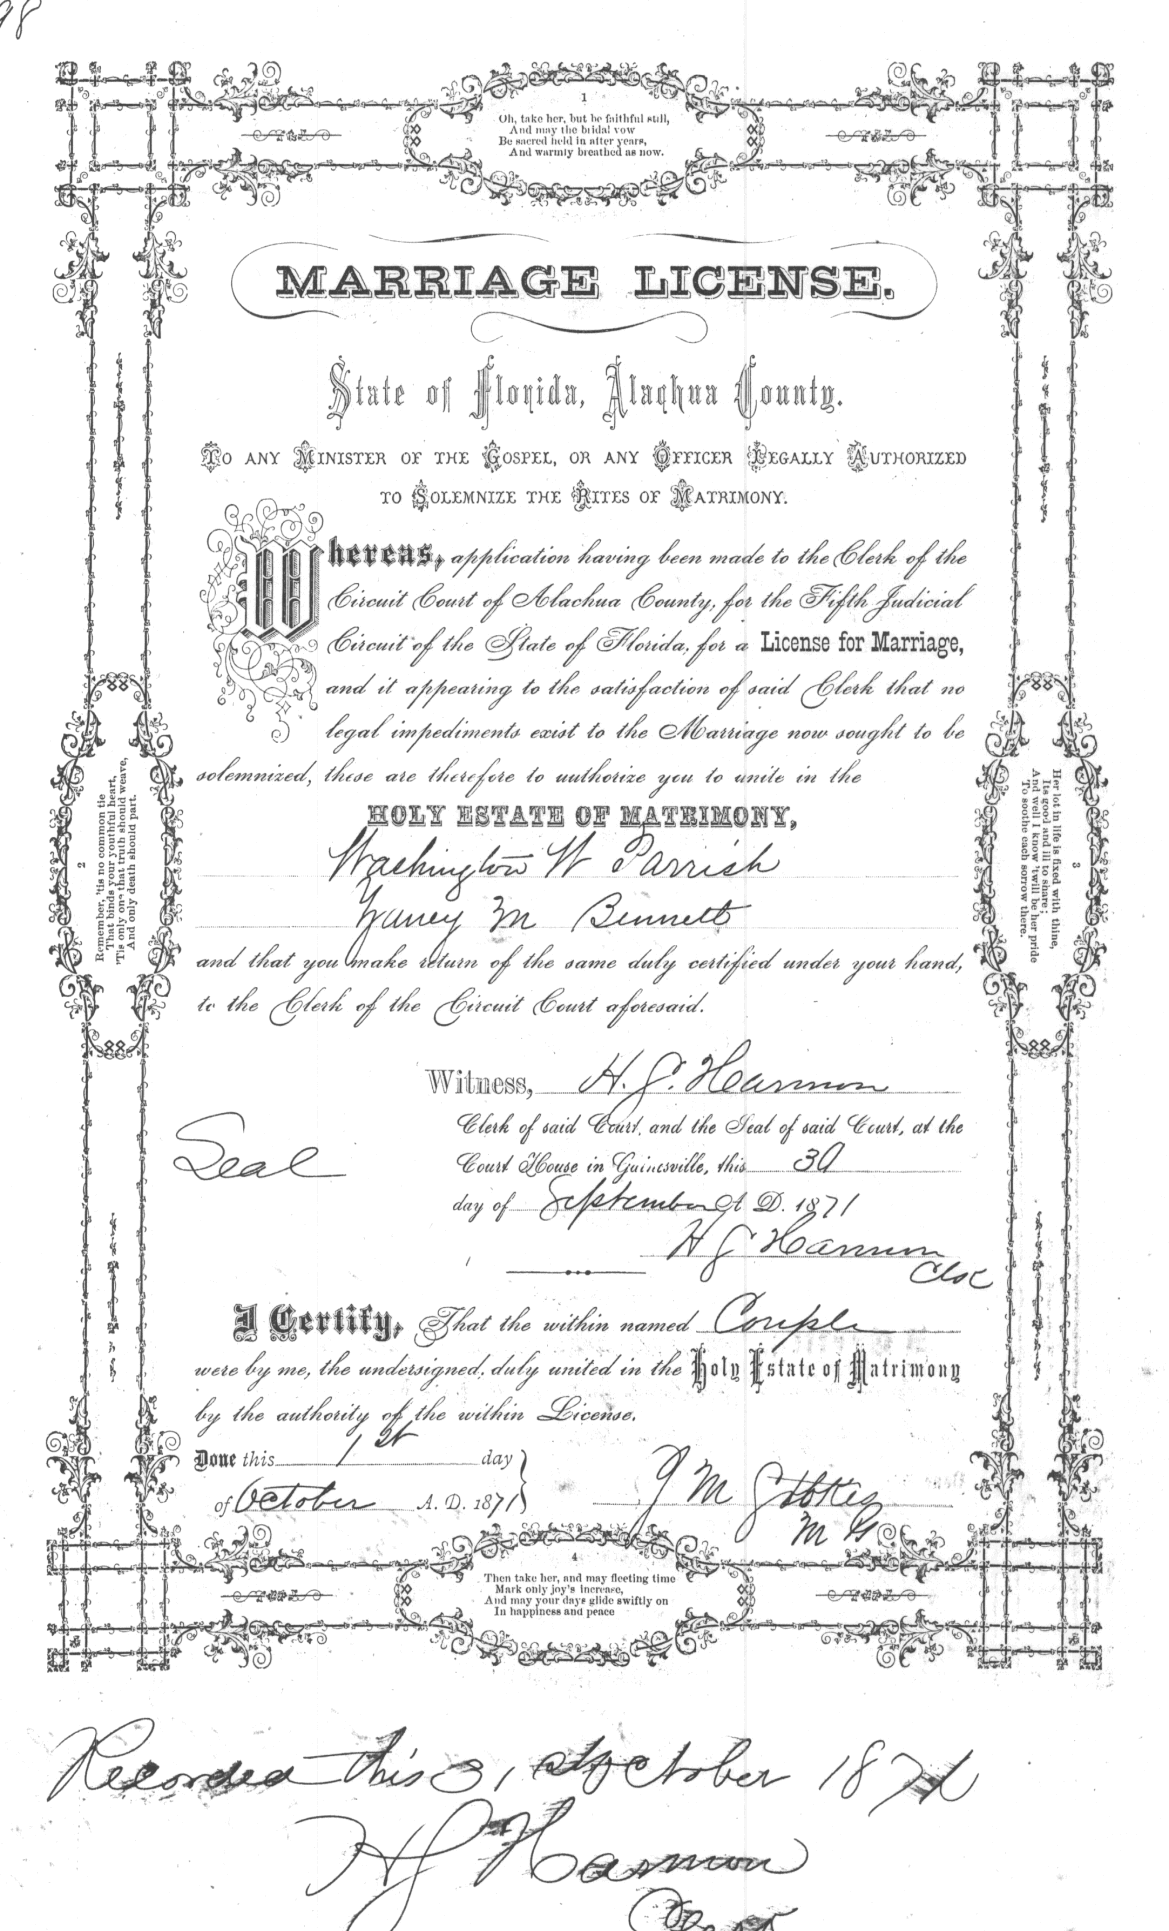 98
1
Oh, take her, but be faithful still,
And may the bridal vow
Be sacred held in after years,
And warmly breathed as now.
MARRIAGE LICENSE.
State of Florida, Alachua County.
To any Minister of the Gospel, or any Officer Legally Authorized
to Solemnize the Rites of Matrimony.
Whereas, application having been made to the Clerk of the
Circuit Court of Alachua County, for the Fifth Judicial
Circuit of the State of Florida, for a License for Marriage,
and it appearing to the satisfaction of said Clerk that no
legal impediments exist to the Marriage now sought to be
solemnized, these are therefore to authorize you to unite in the
HOLY ESTATE OF MATRIMONY,
Washington W Parrish
M Bennett
and that you make return of the same duly certified under your hand,
to the Clerk of the Circuit Court aforesaid.
Witness, H. J. Harmon
Clerk of said Court, and the Seal of said Court, at the
Seal
Court House in Gainesville, this 30
day of September A D. 1871
H J Harmon
Clk
I Certify, That the within named Couple
were by me, the undersigned, duly united in the Holy Estate of Matrimony
by the authority of the within License.
Done this 1st day
of October A. D. 1871
J M
M G
2
Remember, 'tis no common tie
That binds your youthful heart,
'Tis only one that truth should weave,
And only death should part.
3
Her lot in life is fixed with thine,
Its good and ill to share;
And well I know 'twill be her pride
To soothe each sorrow there.
4
Then take her, and may fleeting time
Mark only joy's increase,
And may your days glide swiftly on
In happiness and peace
Recorded this 31 st October 1871
H J Harmon